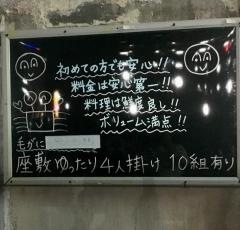 初めての方でも安心!!
料金は安心第一!!
料理は鮮度良し!!
ボリューム満点!!
毛がに
座敷ゆったり4人掛け 10組有り